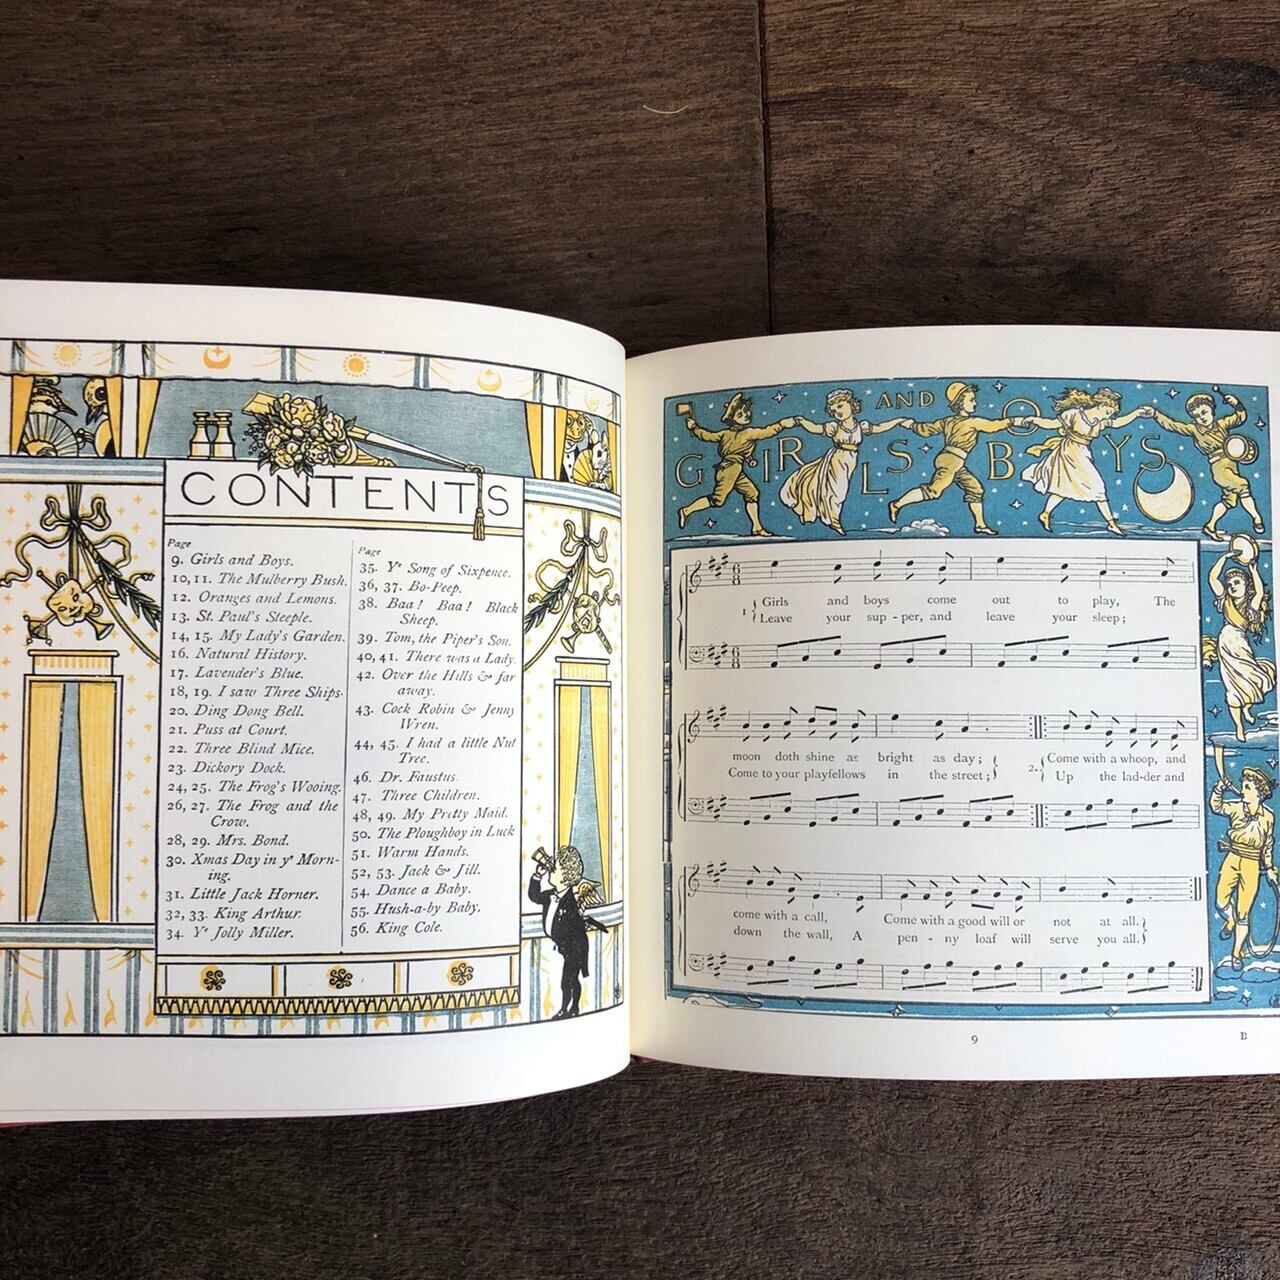 CONTENTS
Page
9. Girls and Boys.
10, 11. The Mulberry Bush.
12. Oranges and Lemons.
13. St. Paul's Steeple.
14, 15. My Lady's Garden.
16. Natural History.
17. Lavender's Blue.
18, 19. I saw Three Ships.
20. Ding Dong Bell.
21. Puss at Court.
22. Three Blind Mice.
23. Dickory Dock.
24, 25. The Frog's Wooing.
26, 27. The Frog and the
Crow.
28, 29. Mrs. Bond.
30. Xmas Day in yᵉ Morn-
ing.
31. Little Jack Horner.
32, 33. King Arthur.
34. Yᵉ Jolly Miller.
Page
35. Yᵉ Song of Sixpence.
36, 37. Bo-Peep.
38. Baa! Baa! Black
Sheep.
39. Tom, the Piper's Son.
40, 41. There was a Lady.
42. Over the Hills & far
away.
43. Cock Robin & Jenny
Wren.
44, 45. I had a little Nut
Tree.
46. Dr. Faustus.
47. Three Children.
48, 49. My Pretty Maid.
50. The Ploughboy in Luck
51. Warm Hands.
52, 53. Jack & Jill.
54. Dance a Baby.
55. Hush-a-by Baby.
56. King Cole.
GIRLS AND BOYS
6
8
1 { Girls and boys come out to play, The
Leave your sup-per, and leave your sleep;
6
8
moon doth shine as bright as day; } 2. { Come with a whoop, and
Come to your playfellows in the street; } Up the lad-der and
come with a call, Come with a good will or not at all.
down the wall, A pen-ny loaf will serve you all.
9
B